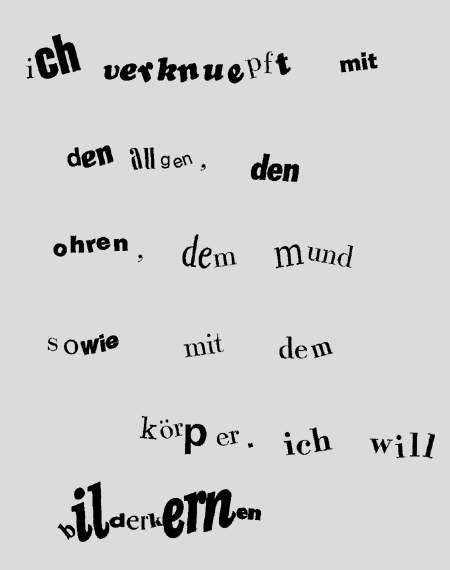 ich verknuepft mit
den allgen, den
ohren, dem mund
sowie mit dem
körper. ich will
bilderkernen